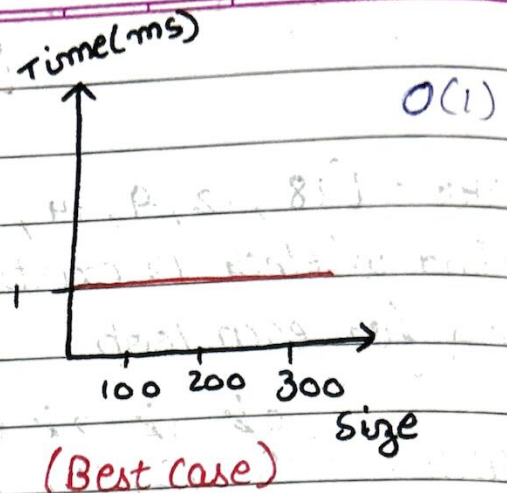 Time(ms)
O(1)
1
100 200 300
Size
(Best Case)